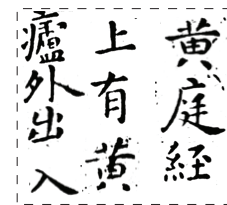 黄庭經
上有黃
廬外出入